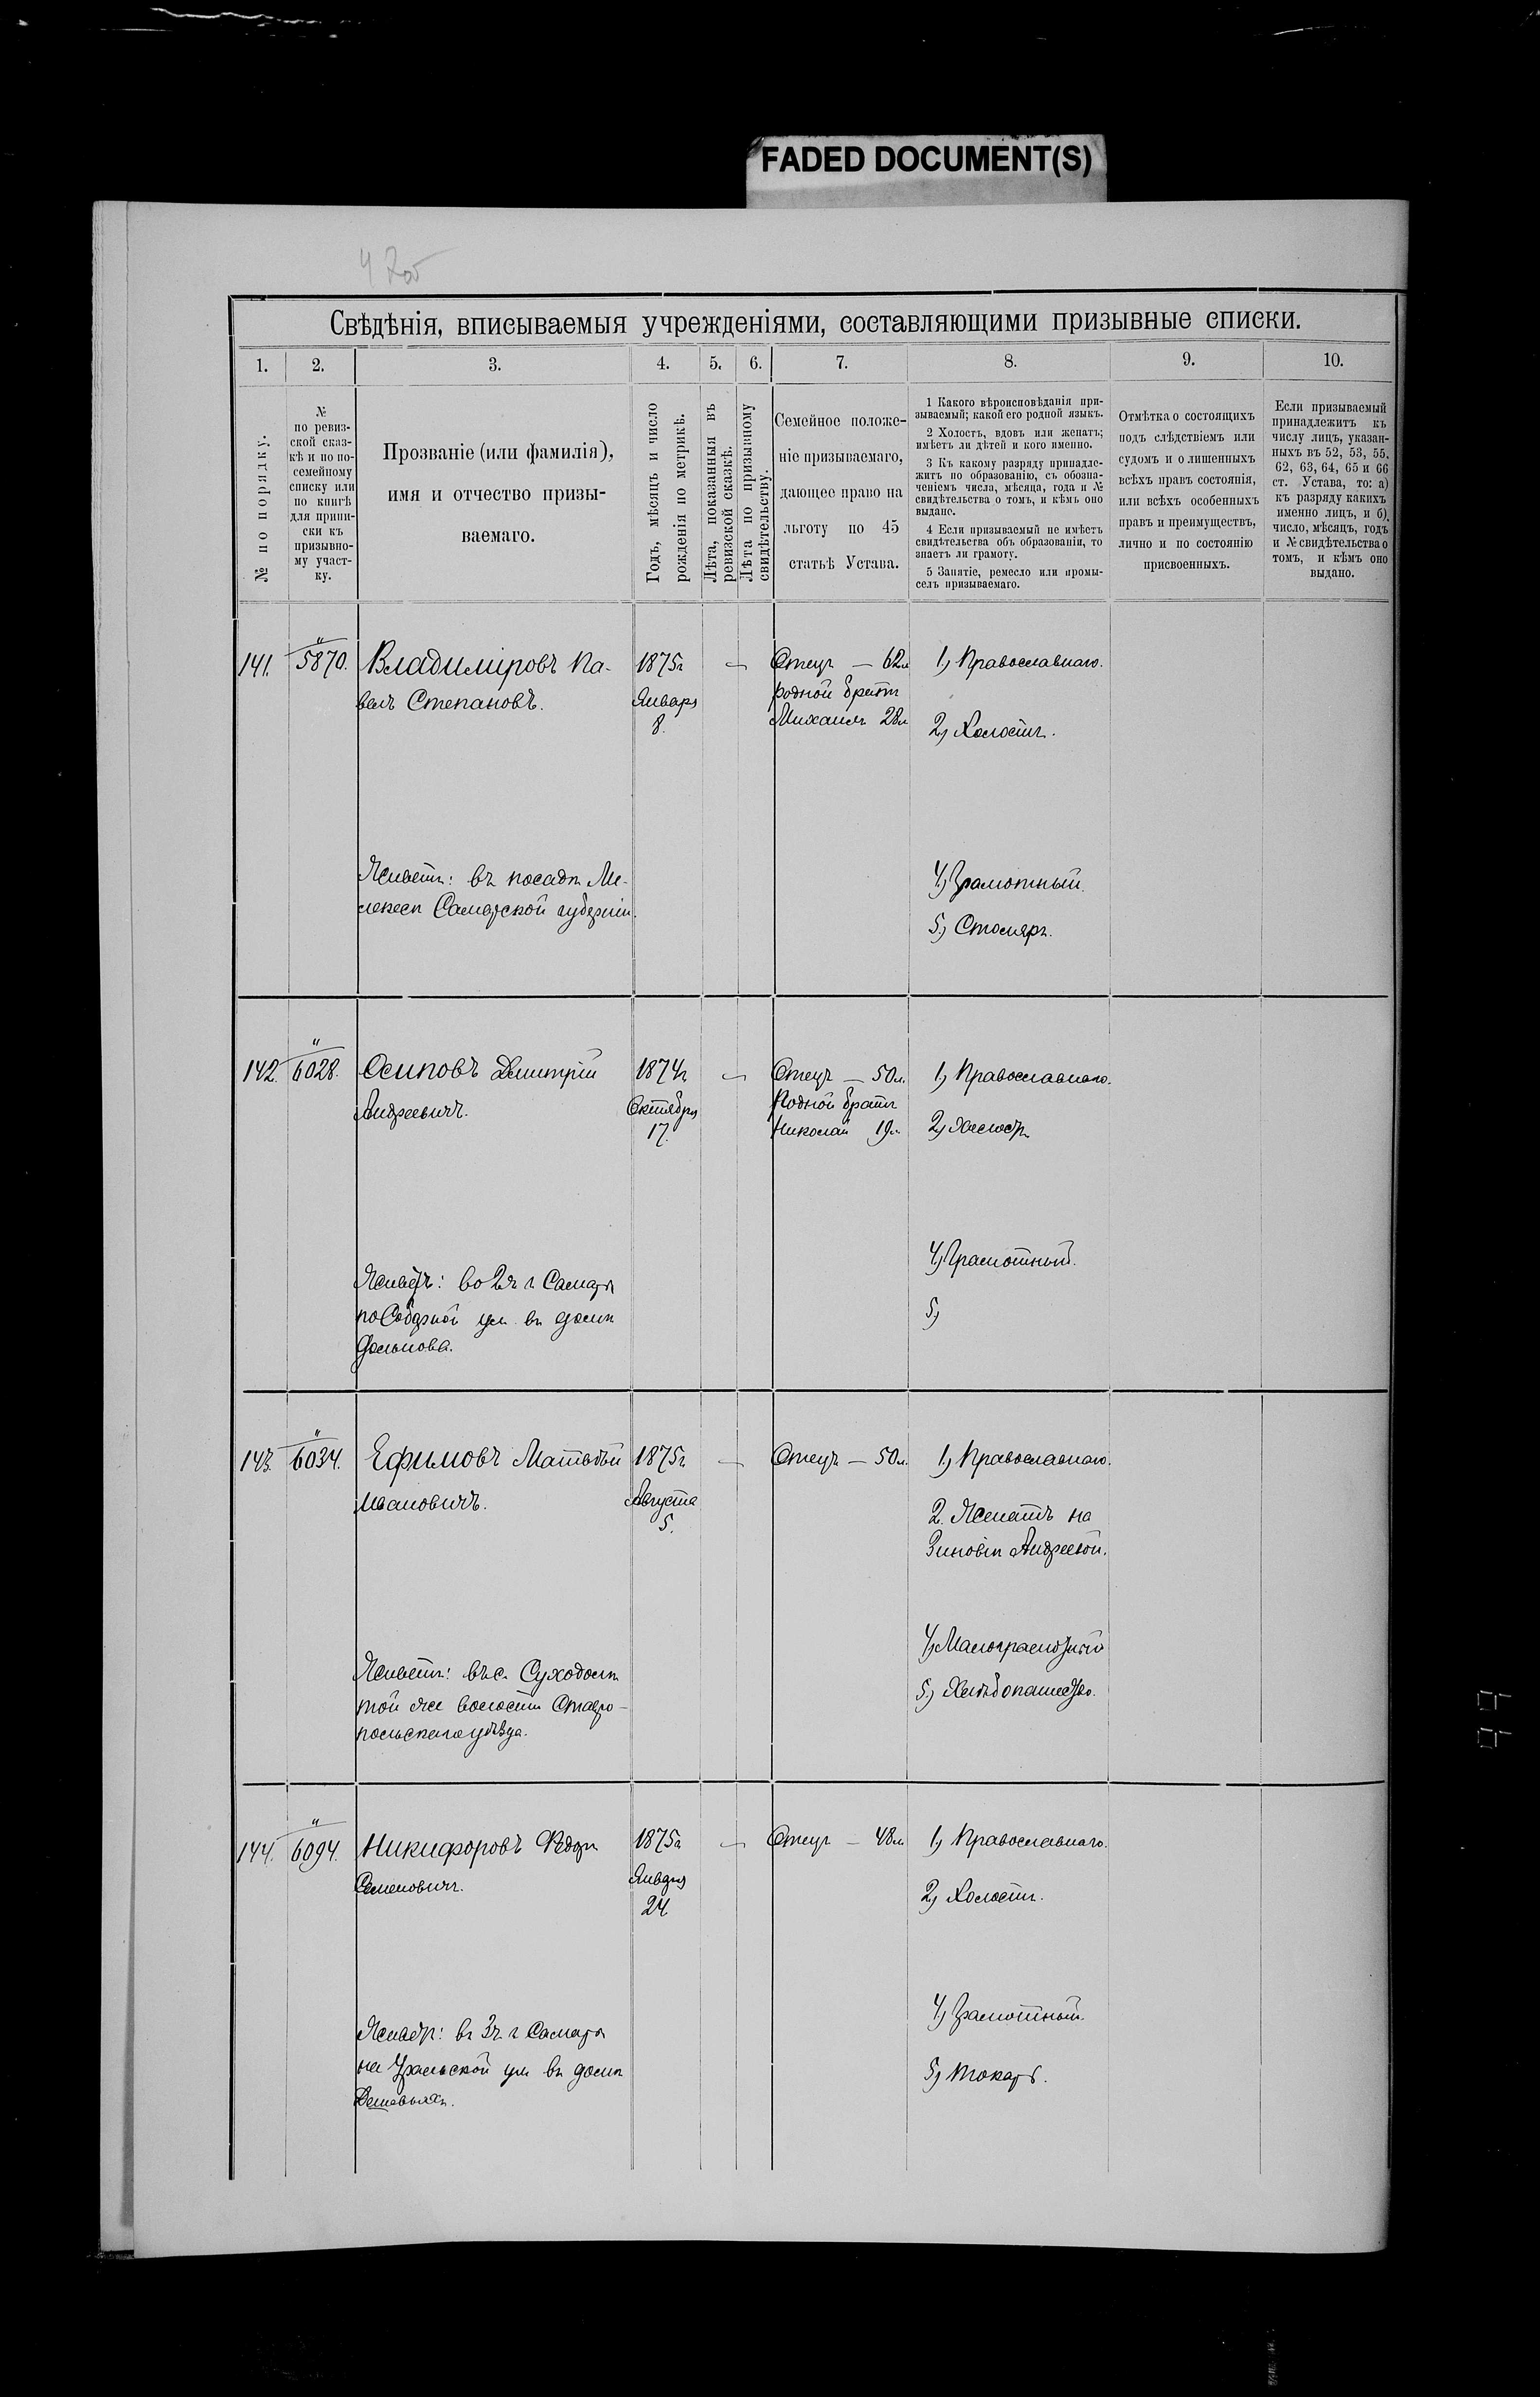 FADED DOCUMENT(S)
Свѣдѣнія, вписываемыя учрежденіями, составляющими призывные списки.
1. 2. 3. 4. 5. 6. 7. 8. 9. 10.
№ по порядку.
№
по ревиз-
ской сказ-
кѣ и по по-
семейному
списку или
по книгѣ
для припи-
ски къ
призывно-
му участ-
ку.
Прозваніе (или фамилія),
имя и отчество призы-
ваемаго.
Годъ, мѣсяцъ и число
рожденія по метрикѣ.
Лѣта, показанныя въ
ревизской сказкѣ.
Лѣта по призывному
свидѣтельству.
Семейное положе-
ніе призываемаго,
дающее право на
льготу по 45
статьѣ Устава.
1 Какого вѣроисповѣданія при-
зываемый; какой его родной языкъ.
2 Холостъ, вдовъ или женатъ;
имѣетъ ли дѣтей и кого именно.
3 Къ какому разряду принадле-
житъ по образованію, съ обозна-
ченіемъ числа, мѣсяца, года и №
свидѣтельства о томъ, и кѣмъ оно
выдано.
4 Если призываемый не имѣетъ
свидѣтельства объ образованіи, то
знаетъ ли грамоту.
5 Занятіе, ремесло или промы-
селъ призываемаго.
Отмѣтка о состоящихъ
подъ слѣдствіемъ или
судомъ и о лишенныхъ
всѣхъ правъ состоянія,
или всѣхъ особенныхъ
правъ и преимуществъ,
лично и по состоянію
присвоенныхъ.
Если призываемый
принадлежитъ къ
числу лицъ, указан-
ныхъ въ 52, 53, 55,
62, 63, 64, 65 и 66
ст. Устава, то: а)
къ разряду какихъ
именно лицъ, и б)
число, мѣсяцъ, годъ
и № свидѣтельства о
томъ, и кѣмъ оно
выдано.
141. " 5870. Владиміровъ Па-
велъ Степановъ.
1875г
Января
8.
—
Отецъ — 62л
родной братъ
Михаилъ 28л
1) Православнаго.
2) Холостъ.
Живетъ: въ посадѣ Ме-
лекесѣ Самарской губерніи.
4) Грамотный.
5) Столяръ.
142. " 6028. Осиповъ Дмитрій
Андреевичъ.
1874г
Октября
17.
—
Отецъ — 50л.
Родной братъ
Николай 19л.
1) Православнаго.
2) Холостъ
Живетъ: во 2ч г Самары
по Соборной ул. въ домѣ
4) Грамотный.
5)
143. " 6034. Ефимовъ Матвѣй
Ивановичъ.
1875г.
Августа
5.
—
Отецъ — 50л.
1) Православнаго.
2. Женатъ на
Зиновіи Андреевой.
Живетъ: въ с. Суходолѣ
той же волости Ставро-
польскаго уѣзда.
4) Малограмотный
5) Хлѣбопашество.
144. " 6094. Никифоровъ Ѳедоръ
Семеновичъ.
1875г
Января
24
—
Отецъ — 48л.
1) Православнаго.
2) Холостъ.
Живетъ: въ 3ч. г Самары
на Уральской ул въ домѣ
4) Грамотный.
5) Токарь.
99